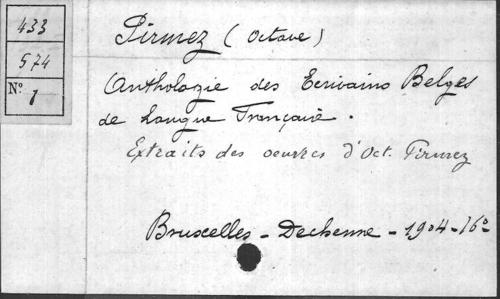 433
574
N° 1
Pirmez (Octave)
Anthologie des Ecrivains Belges
de Langue Française.
Extraits des oeuvres d'Oct. Pirmez
Bruxelles - Dechenne - 1904 - 16°